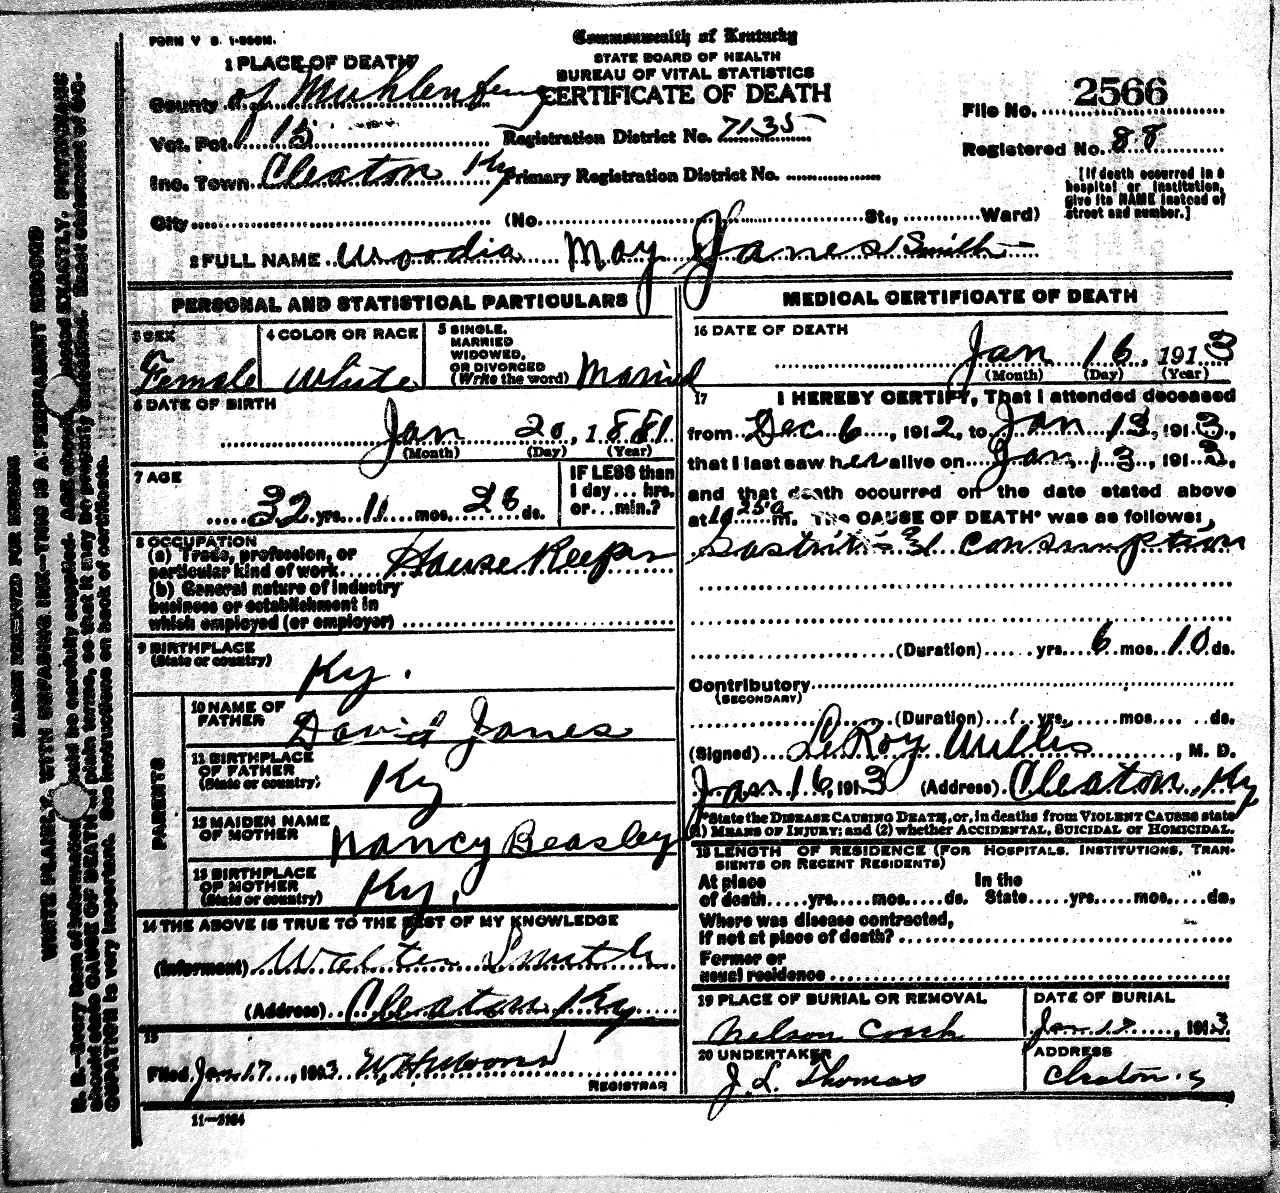 FORM V S. 1-500M.
Commonwealth of Kentucky
STATE BOARD OF HEALTH
BUREAU OF VITAL STATISTICS
CERTIFICATE OF DEATH
1 PLACE OF DEATH
County of Muhlenberg
Vot. Pct. 15
Registration District No. 7135
Inc. Town Cleaton Ky
Primary Registration District No.
City (No. St., Ward)
File No. 2566
Registered No. 88
[If death occurred in a
hospital or institution,
give its NAME instead of
street and number.]
2 FULL NAME Woodia May Janes Smith
PERSONAL AND STATISTICAL PARTICULARS
3 SEX
Female
4 COLOR OR RACE
White
5 SINGLE,
MARRIED
WIDOWED,
OR DIVORCED
(Write the word) Married
6 DATE OF BIRTH
Jan 20, 1881
(Month) (Day) (Year)
7 AGE
32 yrs. 11 mos. 26 ds.
IF LESS than
1 day... hrs.
or... min.?
8 OCCUPATION
(a) Trade, profession, or
particular kind of work House Keeper
(b) General nature of industry
business or establishment in
which employed (or employer)
9 BIRTHPLACE
(State or country)
Ky.
PARENTS
10 NAME OF
FATHER David Janes
11 BIRTHPLACE
OF FATHER
(State or country)
Ky
12 MAIDEN NAME
OF MOTHER Nancy Beasley
13 BIRTHPLACE
OF MOTHER
(State or country)
Ky.
14 THE ABOVE IS TRUE TO THE BEST OF MY KNOWLEDGE
(Informant) Walter Smith
(Address) Cleaton Ky
15
Filed Jan 17, 1913
REGISTRAR
11-3184
MEDICAL CERTIFICATE OF DEATH
16 DATE OF DEATH
Jan 16 1913
(Month) (Day) (Year)
17 I HEREBY CERTIFY, That I attended deceased
from Dec 6, 1912, to Jan 13, 1913,
that I last saw her alive on Jan 13, 1913,
and that death occurred on the date stated above
at 10 25 a m. The CAUSE OF DEATH* was as follows:
Gastritis & consumption
(Duration) yrs. 6 mos. 10 ds.
Contributory
(SECONDARY)
(Duration) yrs. mos. ds.
(Signed) LeRoy Willis, M. D.
Jan 16, 1913 (Address) Cleaton, Ky
*State the DISEASE CAUSING DEATH, or, in deaths from VIOLENT CAUSES state
(1) MEANS OF INJURY; and (2) whether ACCIDENTAL, SUICIDAL OR HOMICIDAL.
18 LENGTH OF RESIDENCE (FOR HOSPITALS, INSTITUTIONS, TRAN-
SIENTS OR RECENT RESIDENTS)
At place
of death yrs. mos. ds.
In the
State yrs. mos. ds.
Where was disease contracted,
if not at place of death?
Former or
usual residence
19 PLACE OF BURIAL OR REMOVAL
Nelson Creek
DATE OF BURIAL
Jan 17, 1913
20 UNDERTAKER
J. L. Thomas
ADDRESS
Cleaton
MARGIN RESERVED FOR BINDING
WRITE PLAINLY, WITH UNFADING INK—THIS IS A PERMANENT RECORD